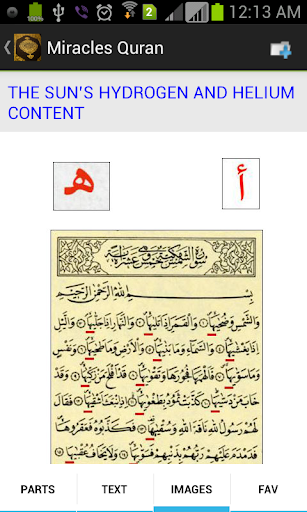 2
12:13 AM
Miracles Quran
THE SUN'S HYDROGEN AND HELIUM
CONTENT
أ
ه
سورة الشمس مكية وهي خمس عشرة آية
بِسْمِ اللّٰهِ الرَّحْمٰنِ الرَّحِيمِ
وَالشَّمْسِ وَضُحٰيهَا وَالْقَمَرِ اِذَا تَلٰيهَا وَالنَّهَارِ اِذَا جَلّٰيهَا وَالَّيْلِ
اِذَا يَغْشٰيهَا وَالسَّمَاءِ وَمَا بَنٰيهَا وَالْاَرْضِ وَمَا طَحٰيهَا وَنَفْسٍ
وَمَا سَوّٰيهَا فَاَلْهَمَهَا فُجُورَهَا وَتَقْوٰيهَا قَدْ اَفْلَحَ مَنْ زَكّٰيهَا وَقَدْ
خَابَ مَنْ دَسّٰيهَا كَذَّبَتْ ثَمُودُ بِطَغْوٰيهَا اِذِ انْبَعَثَ اَشْقٰيهَا فَقَالَ
لَهُمْ رَسُولُ اللّٰهِ نَاقَةَ اللّٰهِ وَسُقْيٰيهَا فَكَذَّبُوهُ فَعَقَرُوهَا
فَدَمْدَمَ عَلَيْهِمْ رَبُّهُمْ بِذَنْبِهِمْ فَسَوّٰيهَا وَلَا يَخَافُ عُقْبٰيهَا
PARTS
TEXT
IMAGES
FAV